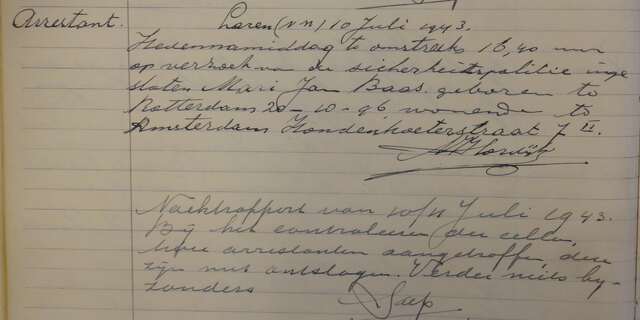 Arrestant. Laren (NH) 10 Juli 1943.
Hedennamiddag te omstreeks 16,40 uur
op verzoek van de sicherheitspolitie inge
sloten Mari Jan Baas. geboren te
Rotterdam 20-10-96 wonende te
Amsterdam Hondenkoeterstraat 7 II.
Nachtrapport van 10/11 Juli 1943.
Bij het controleeren der cellen,
twee arrestanten aangetroffen, deze
zijn niet ontslagen. Verder niets by-
zonders